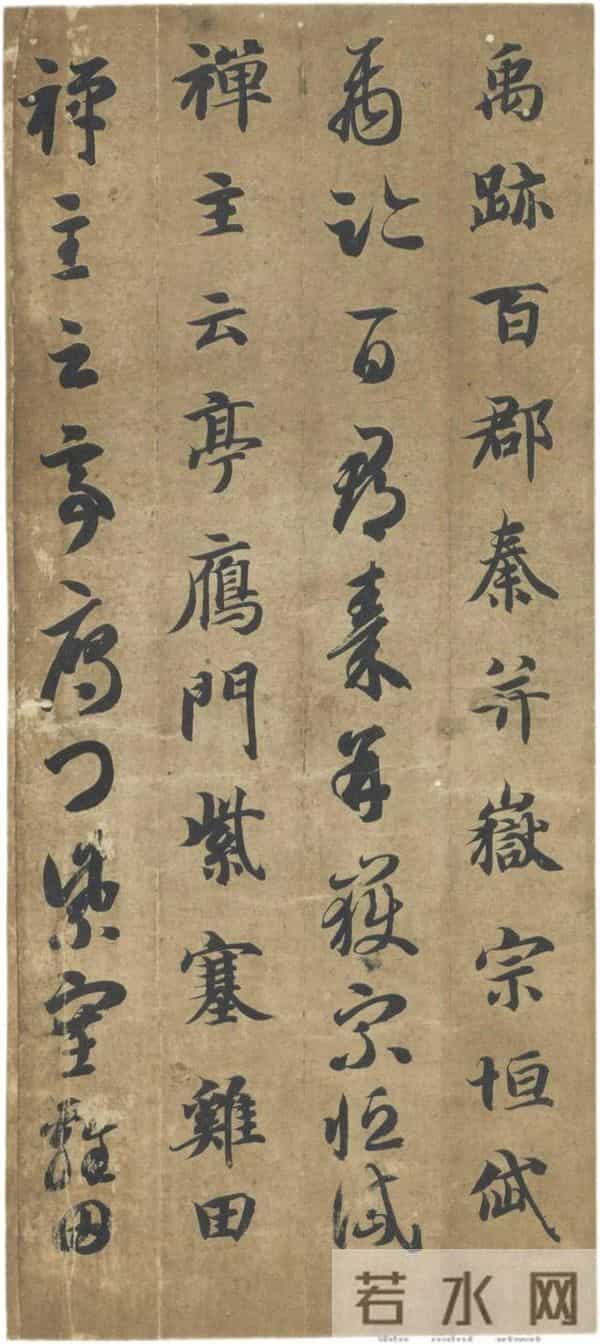 禹跡百郡秦并嶽宗恒岱
禹跡百郡秦并嶽宗恒岱
禪主云亭鴈門紫塞雞田
禪主云亭鴈門紫塞雞田
若水网